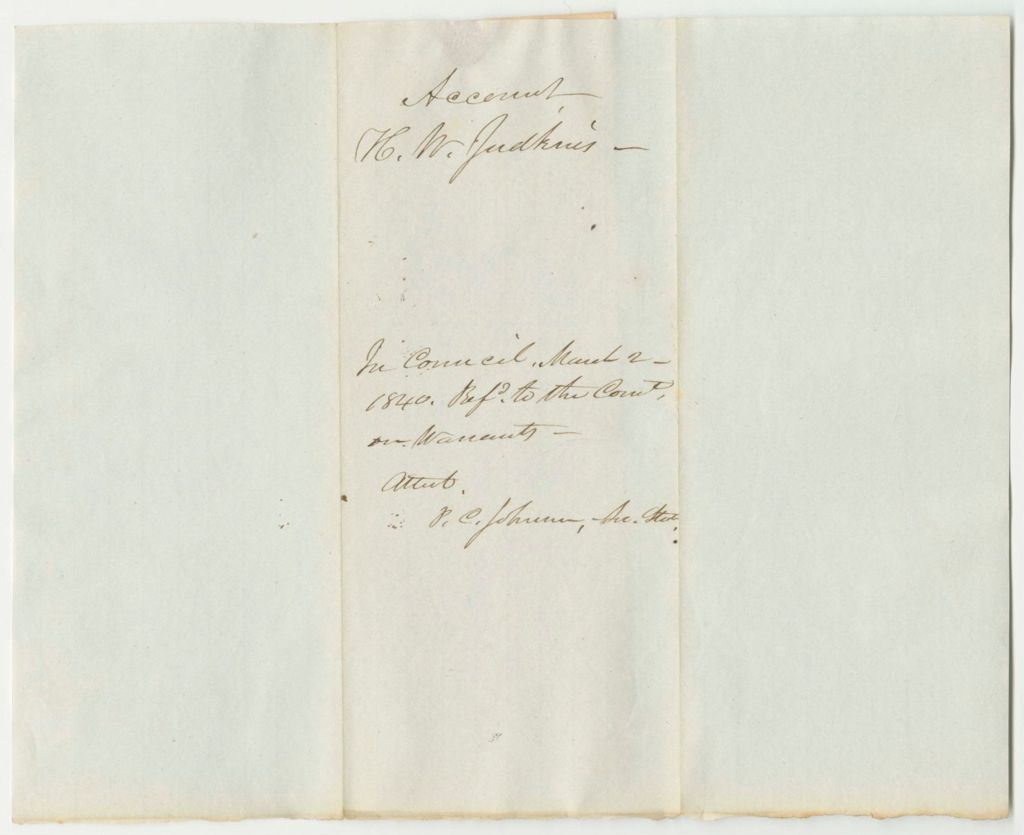 Account
H. W. Judkins –
In Council, March 2 –
1840. Refd. to the Comt.
on Warrants –
Attest.
P. C. Johnson, Sec. State.